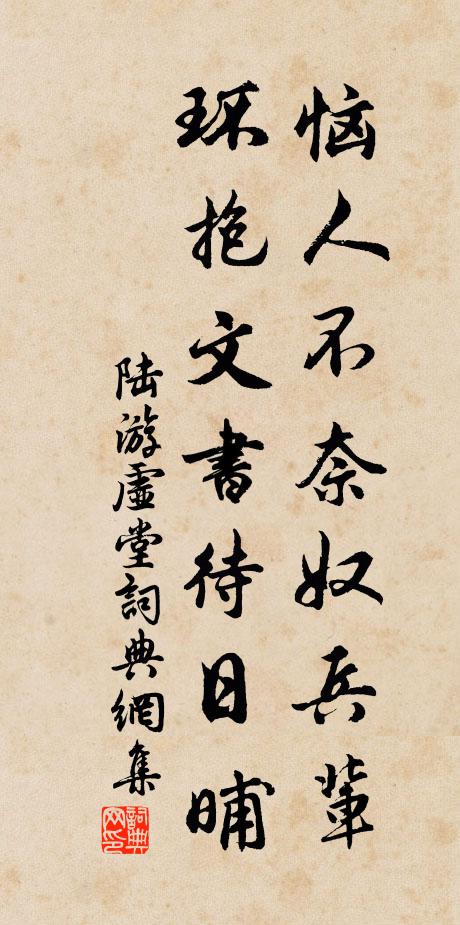 恼人不奈奴兵辈
环抱文書待日晡
陆游虚堂詞典網集
詞典网印